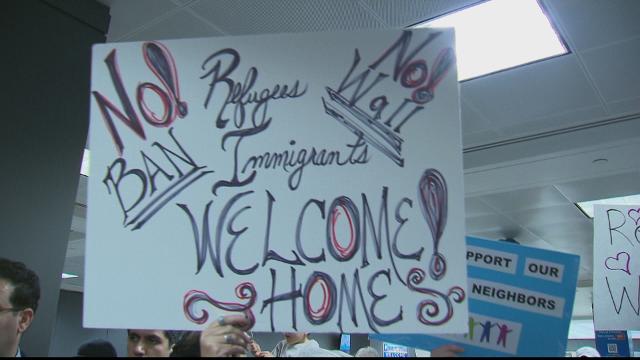 No! BAN
Refugees
Immigrants
WELCOME!
HOME
No! Wall
PPORT OUR
NEIGHBORS